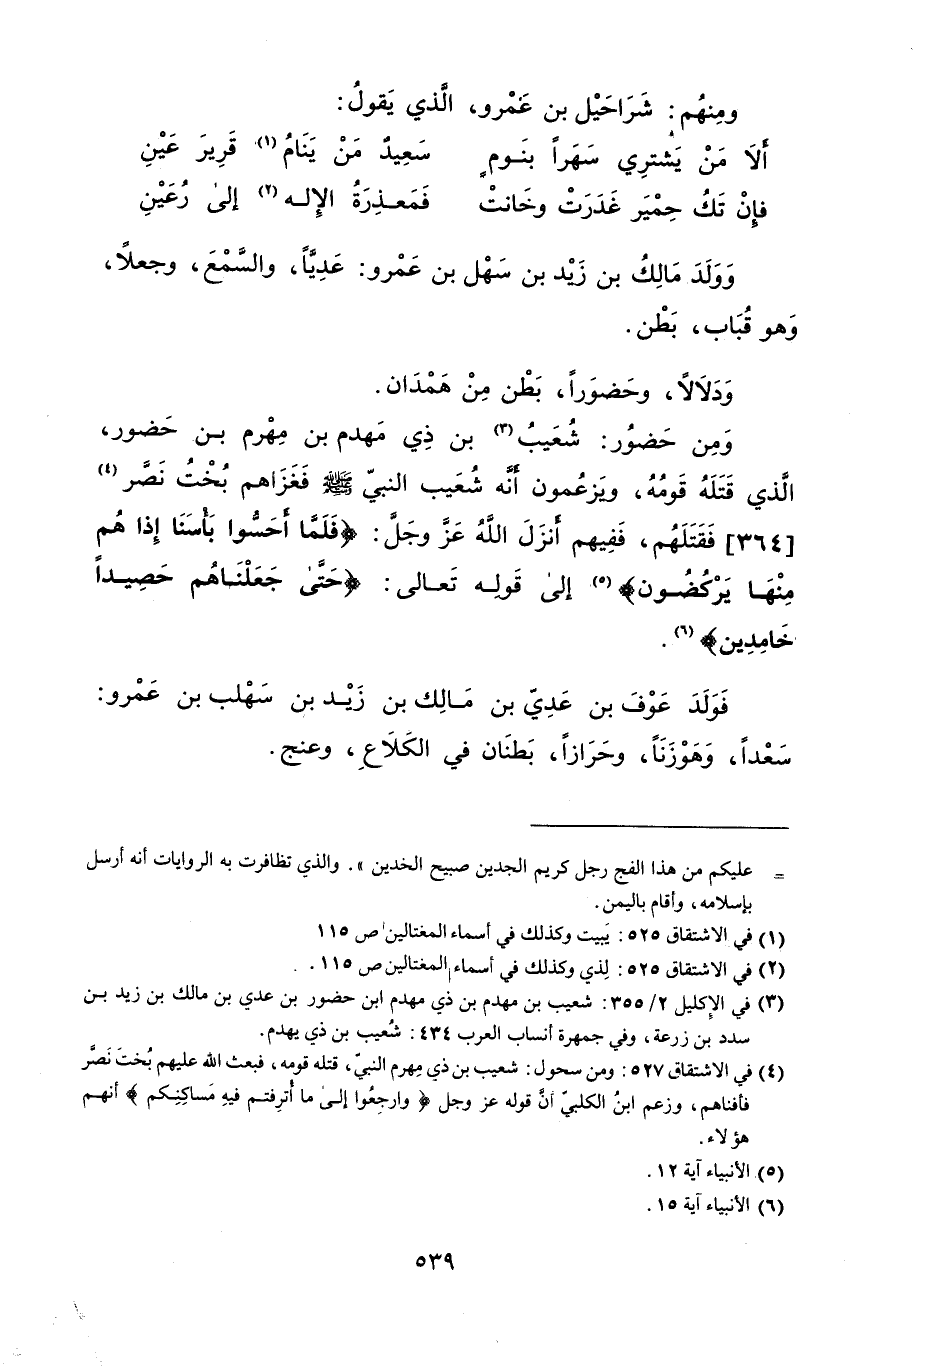 ومِنهُم: شَرَاحَيْل بن عَمْرو، الَّذي يَقولُ:
أَلَا مَنْ يَشترِي سَهَراً بنَومٍ سَعِيدٌ مَنْ يَنَامُ(١) قَرِيرَ عَيْنِ
فإِنْ تَكُ حِمْيَر غَدَرَتْ وخَانتْ فَمَعـذِرَةُ الإلـه(٢) إلىٰ رُعَيْنِ
وَوَلَدَ مَالِكُ بن زَيْد بن سَهْل بن عَمْرو: عَدِيَّاً، والسَّمْعَ، وجعلًا،
وَهو قُبَاب، بَطْن.
وَدَلَالًا، وحَضوَراً، بَطْن مِنْ هَمْدَان.
وَمِن حَضوُر: شُعَيبُ(٣) بن ذِي مَهدم بن مِهْرم بـن حَضور،
الَّذي قَتَلَهُ قَومُهُ، ويَزعُمون أَنَّه شُعَيب النبيّ ﷺ فَغَزَاهم بُخْتُ نَصَّر(٤)
[٣٦٤] فَقَتَلَهُم، فَفِيهم أَنزَلَ اللَّهُ عَزَّ وجَلَّ: ﴿فَلَمَّا أَحَسُّوا بَأْسَنَا إذا هُم
مِنْهَـا يَرْكُضُـون﴾(٥) إلىٰ قَولِـه تَعـالى: ﴿حَتَّىٰ جَعَلْنَـاهُم حَصِيـداً
خَامِدِين﴾(٦).
فَوَلَدَ عَوْفَ بن عَدِيّ بن مَـالِك بن زَيْـد بن سَهْلب بن عَمْرو:
سَعْداً، وَهَوْزَنَاً، وحَرَازاً، بَطنَان في الكَلَاعِ، وعنج.
= عليكم من هذا الفج رجل كريم الجدين صبيح الخدين ». والذي تظافرت به الروايات أنه أرسل
بإسلامه، وأقام باليمن.
(١) في الاشتقاق ٥٢٥: يَبيت وكذلك في أسماء المغتالين ص ١١٥
(٢) في الاشتقاق ٥٢٥: لِذي وكذلك في أسماء المغتالين ص ١١٥.
(٣) في الإكليل ٢/ ٣٥٥: شعيب بن مهدم بن ذي مهدم ابن حضور بن عدي بن مالك بن زيد بـن
سدد بن زرعة، وفي جمهرة أنساب العرب ٤٣٤: شُعيب بن ذي يهدم.
(٤) في الاشتقاق ٥٢٧: ومن سحول: شعيب بن ذي مِهرم النبيّ، قتله قومه، فبعث الله عليهم بُختَ نَصَّر
فأفناهم، وزعم ابنُ الكلبيّ أنَّ قوله عز وجل ﴿ وارجعُوا إلىٰ ما أُترِفتـم فيهِ مَساكِنِـكم ﴾ أنهـم
هؤلاء.
(٥) الأنبياء آية ١٢.
(٦) الأنبياء آية ١٥.
٥٣٩